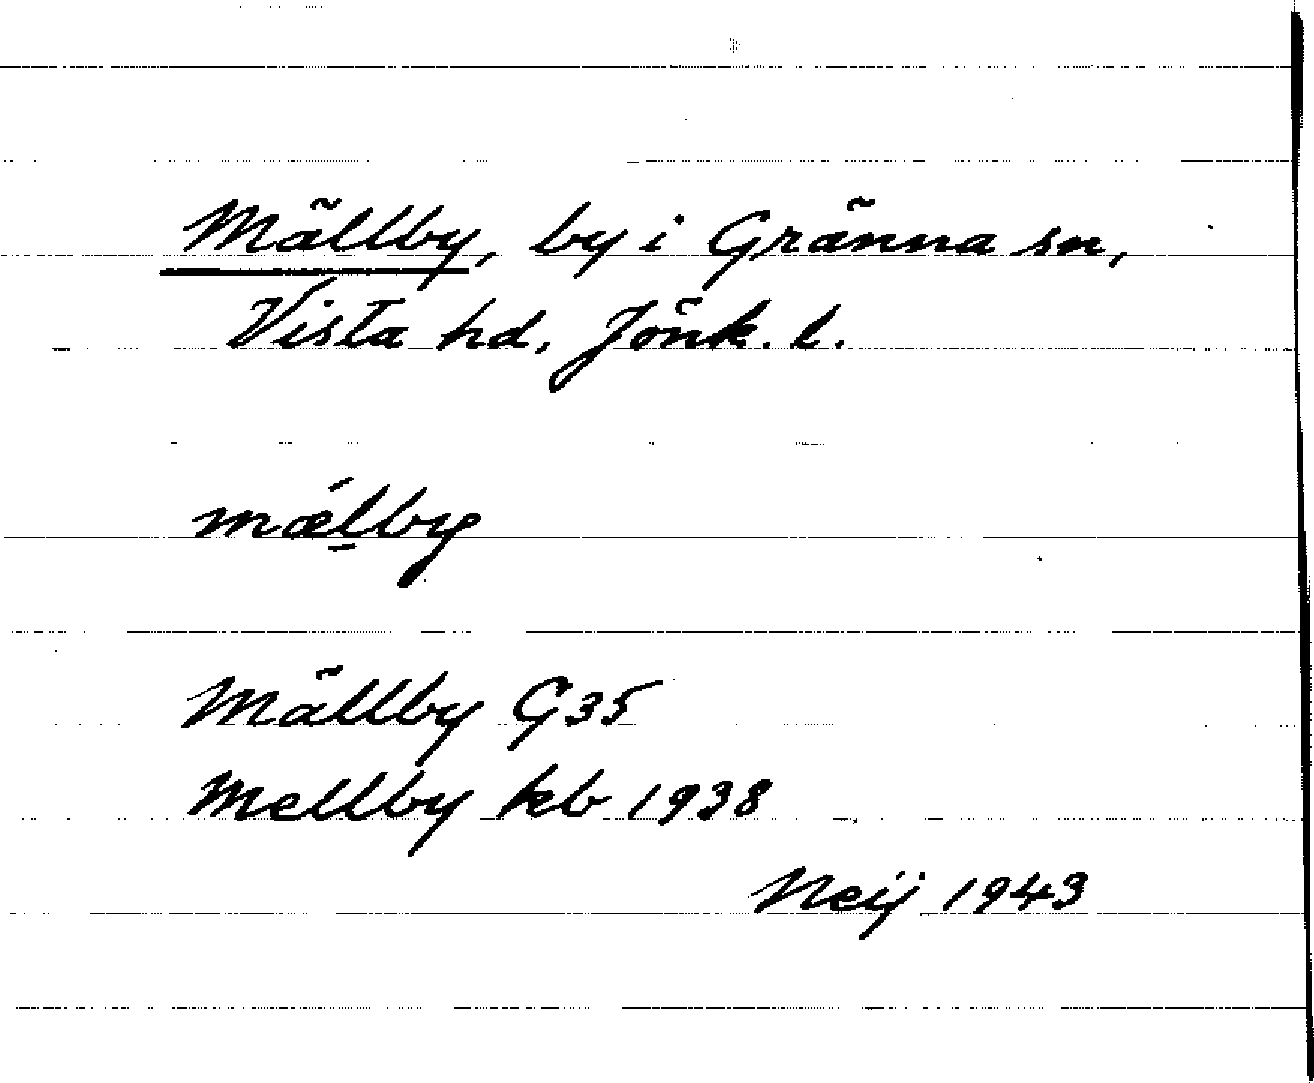 Mällby, by i Gränna sn,
Vista hd, Jönk. l.
mǽl̠by
Mällby G35
Mellby kb 1938
Neij 1943